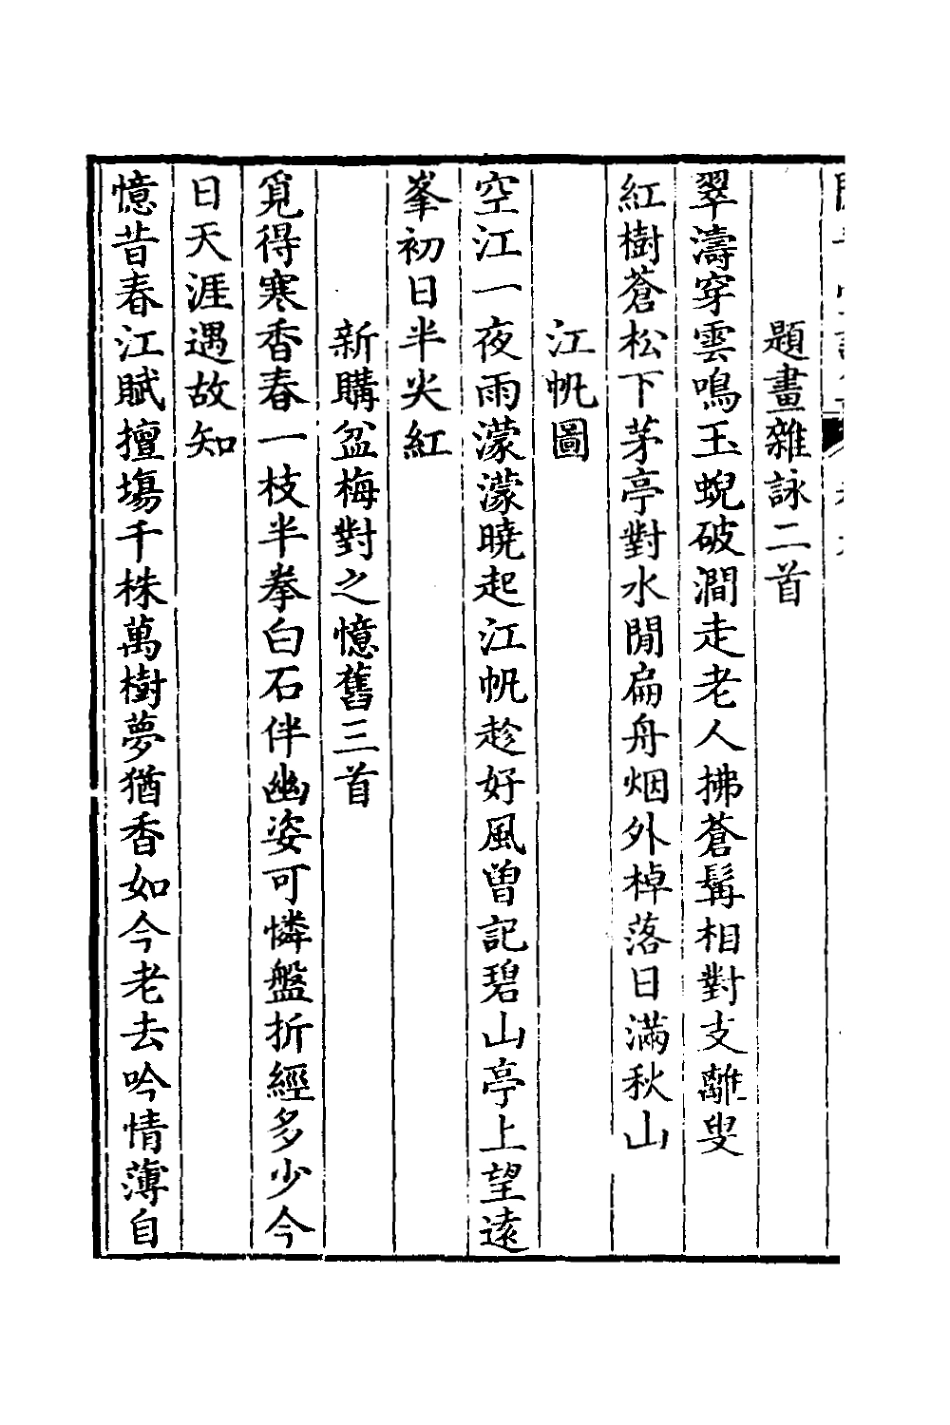 題畫雜詠二首
翠濤穿雲鳴玉蜺破澗走老人拂蒼髯相對支離叟
紅樹蒼松下茅亭對水閒扁舟烟外棹落日滿秋山
江帆圖
空江一夜雨濛濛曉起江帆趁好風曽記碧山亭上望遠
峯初日半尖紅
新購盆梅對之憶舊三首
覓得寒香春一枝半拳白石伴幽姿可憐盤折經多少今
日天涯遇故知
憶昔春江賦擅塲千株萬樹夢猶香如今老去吟情薄自